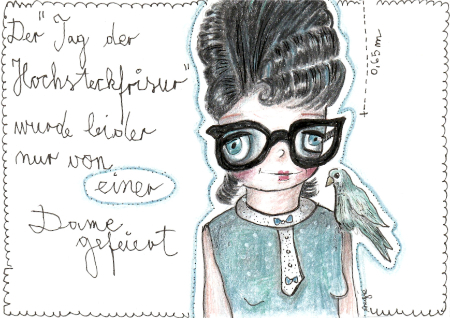 Der "Tag der
Hochsteckfrisur"
wurde leider
nur von
einer
Dame
gefeiert
0,65 m